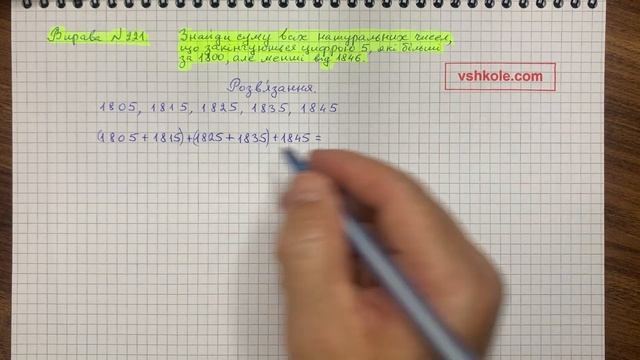 Вправа №221. Знайди суму всіх натуральних чисел,
що закінчуються цифрою 5, які більші
за 1800, але менші від 1846.
vshkole.com
Розв'язання.
1805, 1815, 1825, 1835, 1845
(1805 + 1815) + (1825 + 1835) + 1845 =